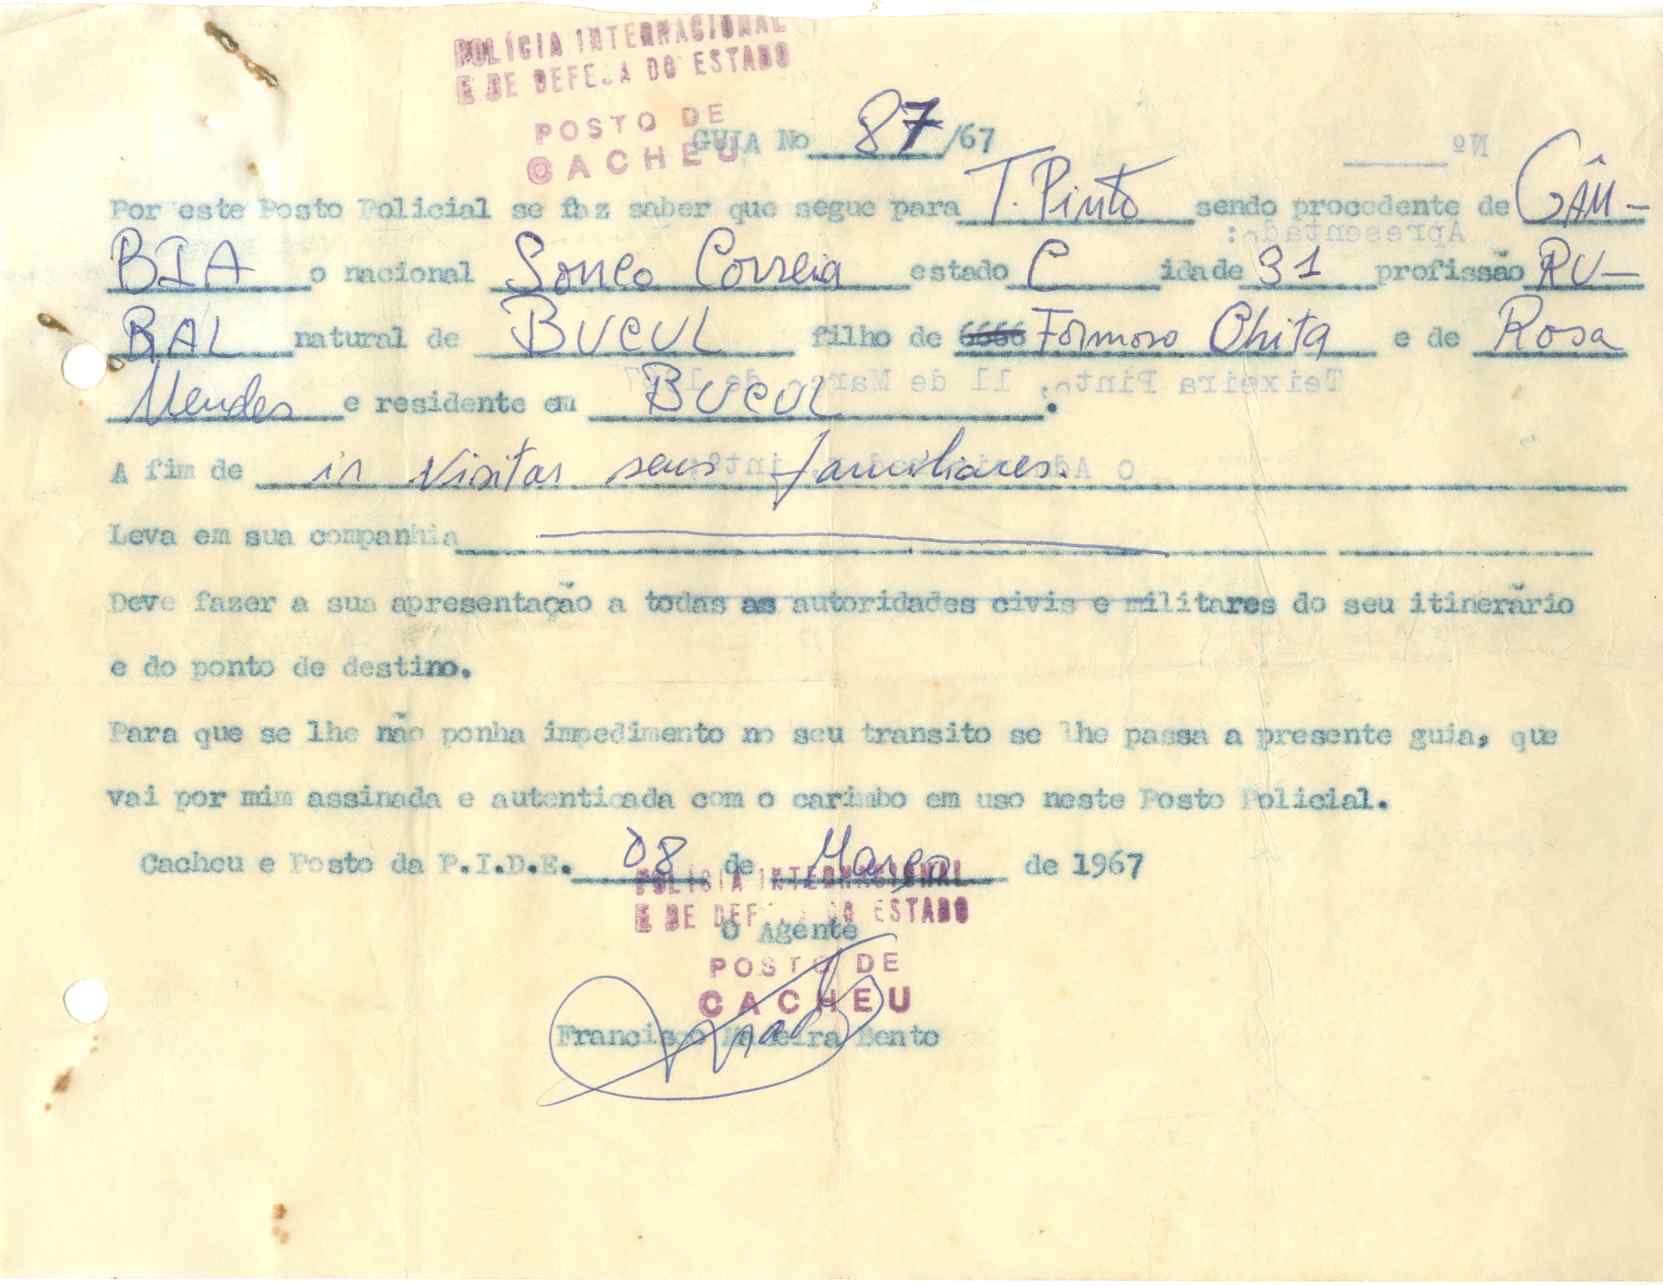 POLÍCIA INTERNACIONAL
E DE DEFESA DO ESTADO
POSTO DE
CACHEU
GUIA No 87/67
Nº
Por este Posto Policial se faz saber que segue para T. Pinto sendo procedente de GÂM-
Apresentado:
BIA o nacional Sonco Correia estado C idade 31 profissão RU-
RAL natural de BUCUL filho de Formoso Chita e de Rosa
Teixeira Pinto, 11 de Março de 1967
Mendes e residente em BUCUL.
A fim de ir visitar seus familiares.
Leva em sua companhia
Deve fazer a sua apresentação a todas as autoridades civis e militares do seu itinerário
e do ponto de destino.
Para que se lhe não ponha impedimento no seu transito se lhe passa a presente guia, que
vai por mim assinada e autenticada com o carimbo em uso neste Posto Policial.
Cacheu e Posto da P.I.D.E. 08 de Março de 1967
POLÍCIA INTERNACIONAL
E DE DEFESA DO ESTADO
O Agente
POSTO DE
CACHEU
Francisco Madeira Bento